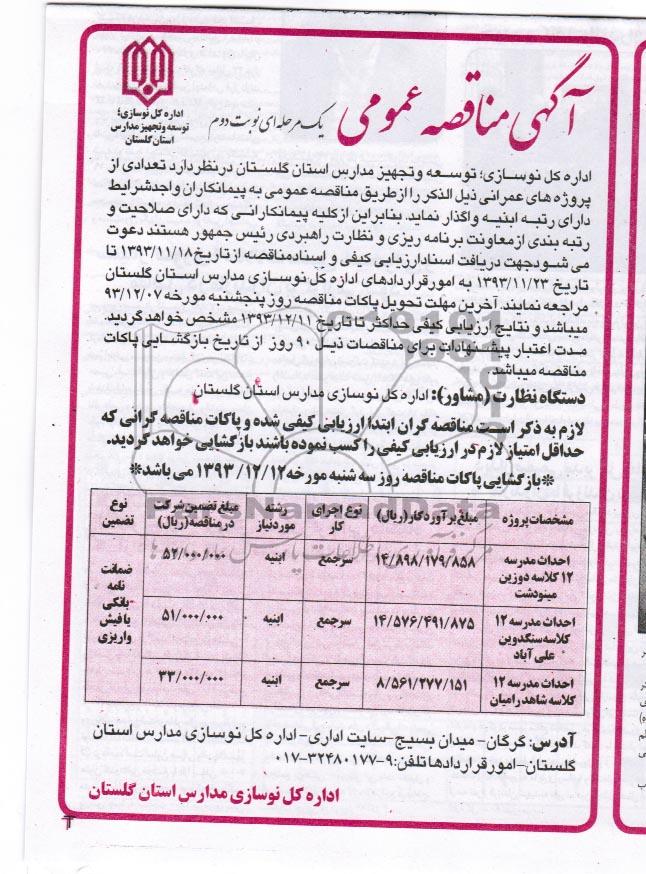 آگهی مناقصه عمومی
یک مرحله ای نوبت دوم
اداره کل نوسازی؛
توسعه و تجهیز مدارس
استان گلستان
اداره کل نوسازی؛ توسعه و تجهیز مدارس استان گلستان در نظر دارد تعدادی از
پروژه های عمرانی ذیل الذکر را از طریق مناقصه عمومی به پیمانکاران واجد شرایط
دارای رتبه ابنیه واگذار نماید. بنابراین از کلیه پیمانکارانی که دارای صلاحیت و
رتبه بندی از معاونت برنامه ریزی و نظارت راهبردی رئیس جمهور هستند دعوت
می شود جهت دریافت اسناد ارزیابی کیفی و اسناد مناقصه از تاریخ ۱۳۹۳/۱۱/۱۸ تا
تاریخ ۱۳۹۳/۱۱/۲۳ به امور قراردادهای اداره کل نوسازی مدارس استان گلستان
مراجعه نمایند. آخرین مهلت تحویل پاکات مناقصه روز پنجشنبه مورخه ۹۳/۱۲/۰۷
میباشد و نتایج ارزیابی کیفی حداکثر تا تاریخ ۱۳۹۳/۱۲/۱۱ مشخص خواهد گردید.
مدت اعتبار پیشنهادات برای مناقصات ذیل ۹۰ روز از تاریخ بازگشایی پاکات
مناقصه میباشد.
دستگاه نظارت (مشاور): اداره کل نوسازی مدارس استان گلستان
لازم به ذکر است مناقصه گران ابتدا ارزیابی کیفی شده و پاکات مناقصه گرانی که
حداقل امتیاز لازم در ارزیابی کیفی را کسب نموده باشند بازگشایی خواهد گردید.
*بازگشایی پاکات مناقصه روز سه شنبه مورخه ۱۳۹۳/۱۲/۱۲ می باشد*
مشخصات پروژه مبلغ برآورد کار (ریال) نوع اجرای کار رشته مورد نیاز مبلغ تضمین شرکت در مناقصه (ریال) نوع تضمین
احداث مدرسه ۱۲ کلاسه دوزین مینودشت ۱۴/۸۹۸/۱۷۹/۸۵۸ سرجمع ابنیه ۵۲/۰۰۰/۰۰۰ ضمانت نامه بانکی یا فیش واریزی
احداث مدرسه ۱۲ کلاسه سنگدوین علی آباد ۱۴/۵۷۶/۴۹۱/۸۷۵ سرجمع ابنیه ۵۱/۰۰۰/۰۰۰
احداث مدرسه ۱۲ کلاسه شاهد رامیان ۸/۵۶۱/۲۷۷/۱۵۱ سرجمع ابنیه ۳۳/۰۰۰/۰۰۰
آدرس: گرگان- میدان بسیج- سایت اداری- اداره کل نوسازی مدارس استان
گلستان- امور قراردادها تلفن: ۹-۳۲۴۸۰۱۷۷-۰۱۷
اداره کل نوسازی مدارس استان گلستان